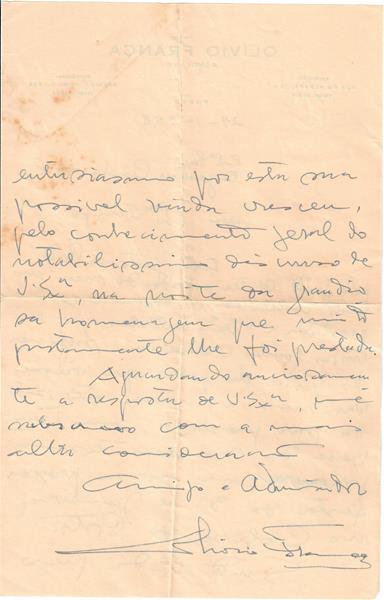 OLIVIO FRANÇA
entusiasmo por esta sua
possivel vinda cresceu,
pelo conhecimento geral do
notabilissimo discurso de
V. Exª, na noite da grandio
sa homenagem que muito
justamente lhe foi prestada.
Aguardando anciosamen
te a resposta de V. Exª, me
subscrevo com a mais
alta consideração
Amigo e Admirador
Olivio França